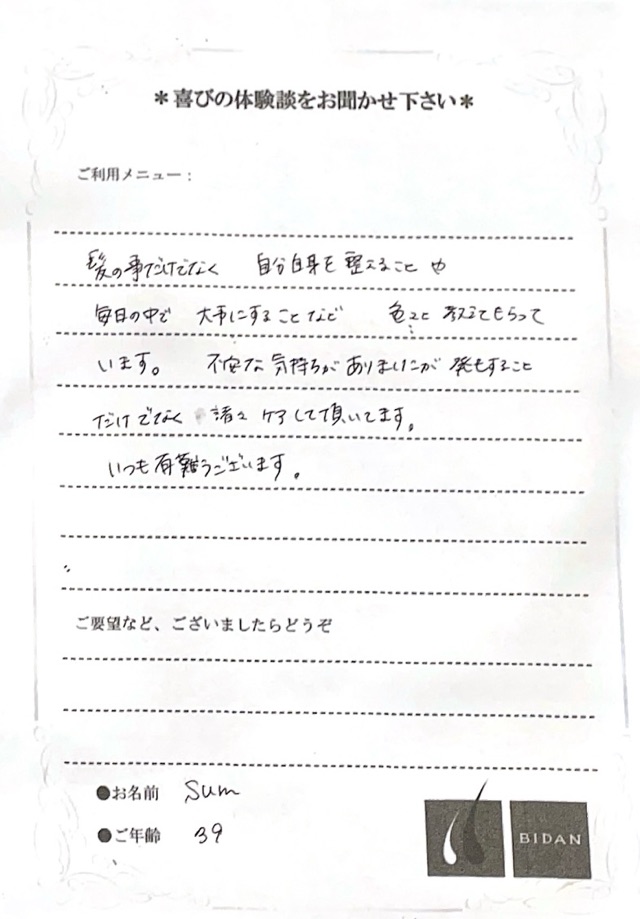 ＊喜びの体験談をお聞かせ下さい＊
ご利用メニュー：
髪の事だけでなく 自分自身を整えることや
毎日の中で 大事にすることなど 色々と教えてもらって
います。 不安な気持ちがありましたが 発毛すること
だけでなく 諸々ケアして頂いてます。
いつも有難うございます。
ご要望など、ございましたらどうぞ
●お名前 sum
●ご年齢 39
BIDAN